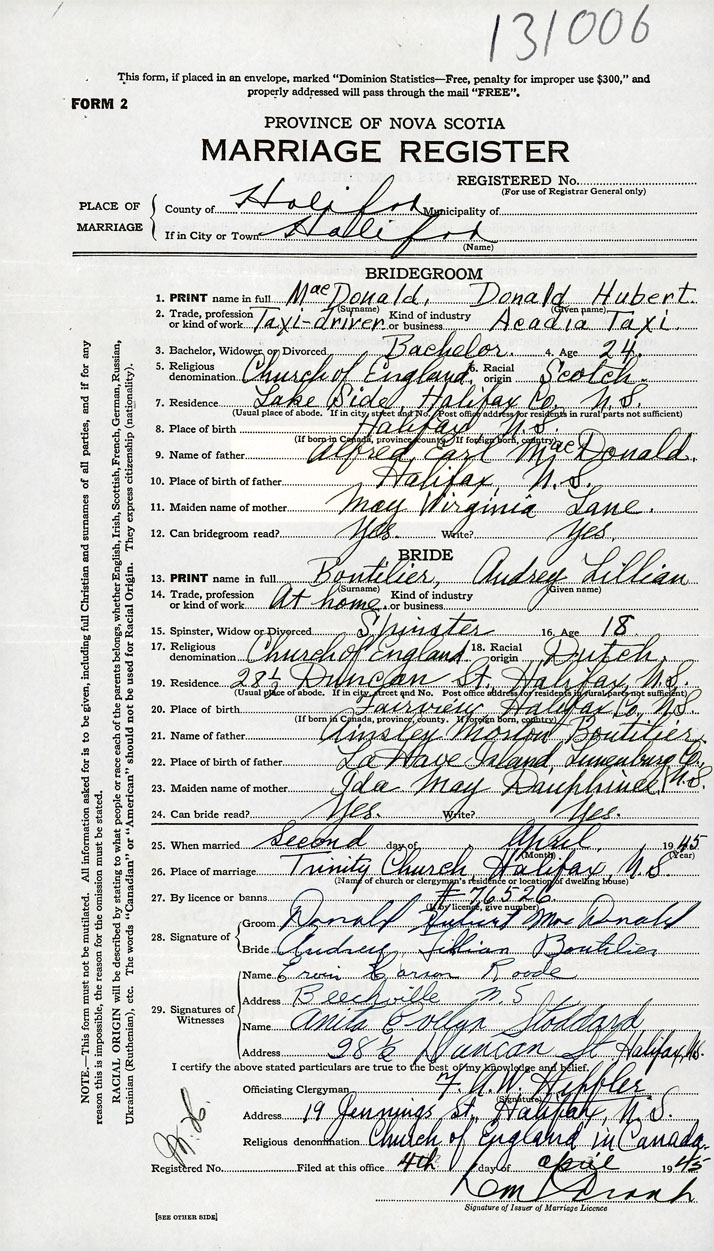 131006
This form, if placed in an envelope, marked "Dominion Statistics—Free, penalty for improper use $300," and
properly addressed will pass through the mail "FREE".
FORM 2
PROVINCE OF NOVA SCOTIA
MARRIAGE REGISTER
REGISTERED No.
(For use of Registrar General only)
PLACE OF MARRIAGE
County of Halifax Municipality of
If in City or Town Halifax
(Name)
BRIDEGROOM
1. PRINT name in full MacDonald, Donald Hubert.
(Surname) (Given name)
2. Trade, profession or kind of work Taxi-driver Kind of industry or business Acadia Taxi.
3. Bachelor, Widower, or Divorced Bachelor. 4. Age 24.
5. Religious denomination Church of England, 6. Racial origin Scotch.
7. Residence Lake Side, Halifax Co., N.S.
(Usual place of abode. If in city, street and No. Post office address for residents in rural parts not sufficient)
8. Place of birth Halifax, N.S.
(If born in Canada, province, county. If foreign born, country)
9. Name of father Alfred Earl MacDonald.
10. Place of father Halifax, N.S.
11. Maiden name of mother May Virginia Lane.
12. Can bridegroom read? Yes. Write? Yes.
BRIDE
13. PRINT name in full Boutilier, Audrey Lillian
(Surname) (Given name)
14. Trade, profession or kind of work At home. Kind of industry or business
15. Spinster, Widow or Divorced Spinster 16. Age 18.
17. Religious denomination Church of England 18. Racial origin Dutch.
19. Residence 28½ Duncan St. Halifax, N.S.
(Usual place of abode. If in city, street and No. Post office address for residents in rural parts not sufficient)
20. Place of birth Fairview, Halifax Co., N.S.
(If born in Canada, province, county. If foreign born, country)
21. Name of father Ainsley Morton Boutilier
22. Place of birth of father La Have Island, Lunenburg Co. N.S.
23. Maiden name of mother Ida May Dauphinee
24. Can bride read? Yes. Write? Yes.
25. When married Second day of April, 1945
(Month) (Year)
26. Place of marriage Trinity Church, Halifax, N.S.
(Name of church or clergyman's residence or location of dwelling house)
27. By licence or banns #76526
(If by licence, give number)
28. Signature of
Groom Donald Hubert MacDonald
Bride Audrey Lillian Boutilier
29. Signatures of Witnesses
Name Ervin Roode
Address Beechville N S
Name Anita Evelyn Stoddard
Address 28½ Duncan St Halifax, N.S.
I certify the above stated particulars are true to the best of my knowledge and belief.
Officiating Clergyman
(Signature)
Address 19 Jennings St., Halifax, N.S.
Religious denomination Church of England in Canada.
Registered No. Filed at this office 4th day of April 1945
Signature of Issuer of Marriage Licence
[SEE OTHER SIDE]
NOTE.—This form must not be mutilated. All information asked for is to be given, including full Christian and surnames of all parties, and if for any
reason this is impossible, the reason for the omission must be stated.
RACIAL ORIGIN will be described by stating to what people or race each of the parents belongs, whether English, Irish, Scottish, French, German, Russian,
Ukrainian (Ruthenian), etc. The words "Canadian" or "American" should not be used for Racial Origin. They express citizenship (nationality).